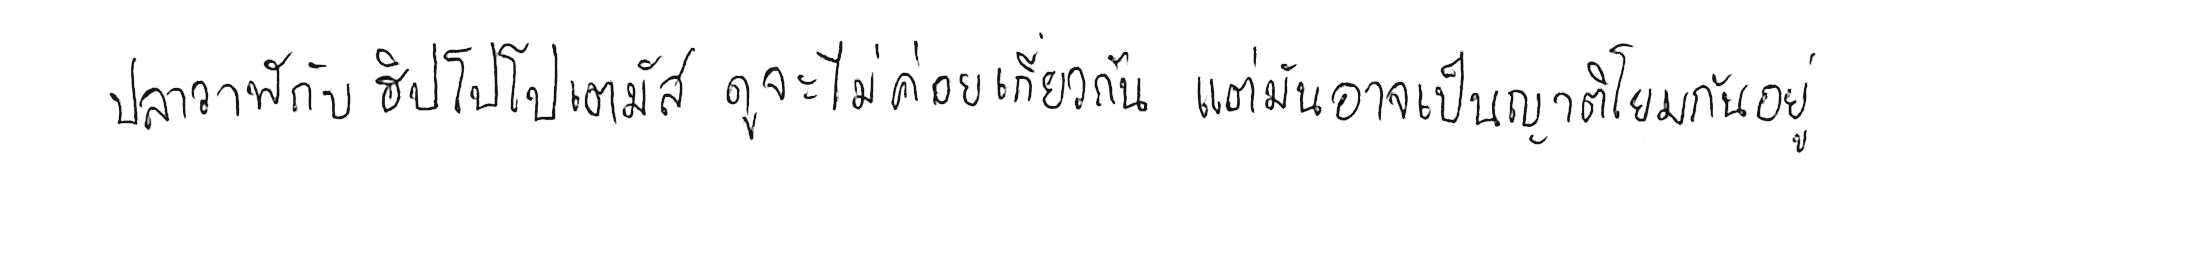 ปลาวาฬกับ ฮิปโปโปเตมัส ดูจะไม่ค่อยเกี่ยวกัน แต่มันอาจเป็นญาติโยมกันอยู่